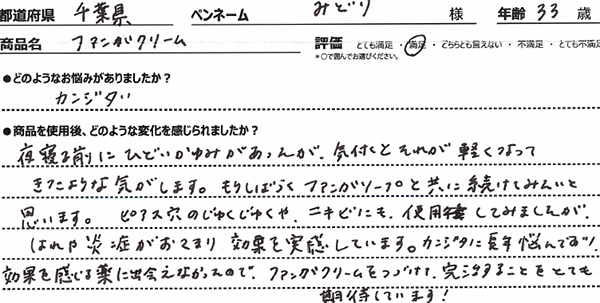 都道府県 千葉県 ペンネーム みどり 様 年齢 33 歳
商品名 ファンガクリーム 評価 とても満足・満足・どちらとも言えない・不満足・とても不満足
*○で囲んでお選びください。
●どのようなお悩みがありましたか?
カンジダ
●商品を使用後、どのような変化を感じられましたか?
夜寝る前にひどいかゆみがあったんが、気付くとそれが軽くなって
きたような気がします。もうしばらくファンガソープと共に続けてみたいと
思います。 ピアス穴のじゅくじゅくや、ニキビにも、使用してみましたが、
はれや炎症がおさまり効果を実感しています。カンジダに長年悩んでおり、
効果を感じる薬に出会えなかったので、ファンガクリームをつづけて、完治することをとても
期待しています!